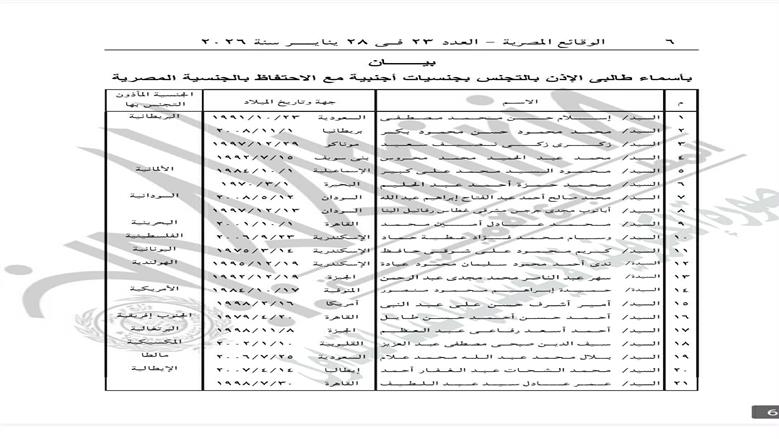 ٦ الوقائع المصرية – العدد ٢٣ فى ٢٨ ينايــر سنة ٢٠٢٦
بيـــــان
بأسماء طالبى الإذن بالتجنس بجنسيات أجنبية مع الاحتفاظ بالجنسية المصرية
م الاســـم جهة وتاريخ الميلاد الجنسية المأذون التجنس بها
١ السيد/ إسلام حسن محمد مصطفى السعودية ١٩٩١/١٠/٢٣ البريطانية
٢ السيد/ محمد محمود حسن محمود بكير بريطانيا ٢٠٠٨/١١/١
٣ السيد/ زكرى زكى نصيف سعد موناكو ١٩٩٧/١٢/٢٩
٤ السيد/ محمد عبد الحميد محمد محروس بنى سويف ١٩٩٢/٧/١٥
٥ السيد/ محمود السيد محمد على كبير الإسماعيلية ١٩٨٤/١٠/١ الألمانية
٦ السيد/ محمد حمزة أحمد عبد الحليم البحيرة ١٩٧٠/٣/١
٧ السيد/ محمد صالح أحمد عبد الفتاح إبراهيم عبد الله السودان ٢٠٠٨/٥/١٢ السودانية
٨ السيد/ أبانوب مجدى جرجس شوقى غطاس رفائيل البنا السودان ١٩٩٧/١٢/١٣
٩ السيد/ محمد عادل أمين محمد القاهرة البحرينية
١٠ السيد/ محمد عطية حماد الإسكندرية ٢٠٠١/٩/٢٣ الفلسطينية
١١ السيد/ كريم محمود على شوقى حافظ الإسكندرية ١٩٧٥/٣/١٤ اليونانية
١٢ السيد/ ندى أحمد محمود سلمان محمود عبادة الإسكندرية ١٩٩٥/١٢/١٩ الهولندية
١٣ السيد/ سهر عبد الناصر محمد مجدى عبد الرحمن الجيزة ١٩٩٢/١٢/١٩
١٤ السيد/ إبراهيم محمود منصور المنوفية ١٩٨٤/١٠/١٧ الأمريكية
١٥ السيد/ أمير أشرف حسن على عبد النبى أمريكا ١٩٩٨/٢/١٦
١٦ السيد/ أحمد حسن أحمد حسن طايل القاهرة ١٩٧٩/٤/٢٠ الجنوب إفريقية
١٧ السيد/ أحمد أسعد رفاعى عبد العظيم الجيزة ١٩٩٨/١١/٨ البرتغالية
١٨ السيد/ سيف الدين صبحى مصطفى عبد العزيز القليوبية ٢٠٠٢/١١/١٠ المكسيكية
١٩ السيد/ بلال محمد عبد الله محمد علام السعودية ٢٠٠٦/٧/٢٥ مالطا
٢٠ السيد/ محمد الشحات عبد الغفار أحمد إيطاليا ٢٠٠٧/٤/١٤ الإيطالية
٢١ السيد/ عمر عادل سيد عبد اللطيف القاهرة ١٩٩٨/٧/٣٠
6